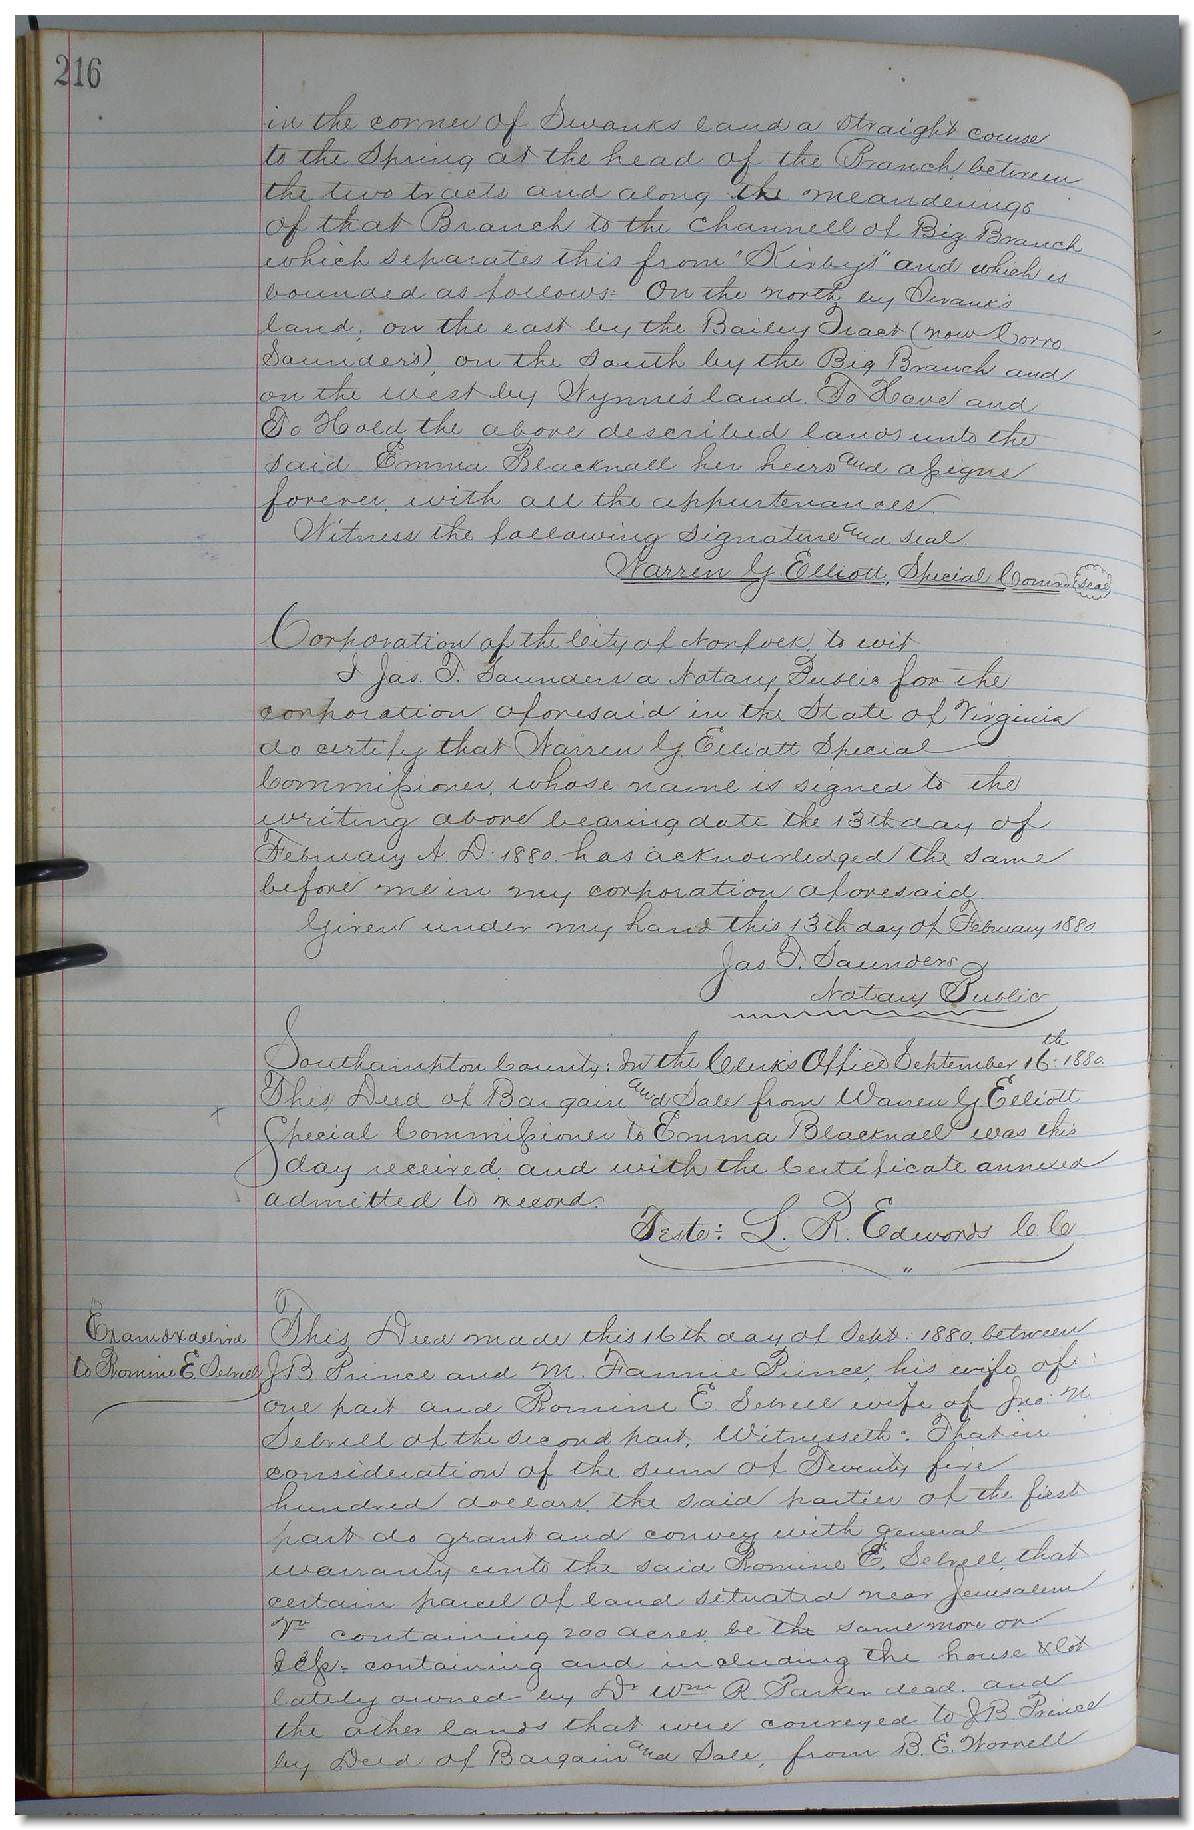 216
in the corner of Swanks land a straight course
to the Spring at the head of the Branch between
the two tracts and along the meanderings
of that Branch to the channell of Big Branch
which separates this from "Kirbys" and which is
bounded as follows: On the north by Swank's
land, on the east by the Bailey Tract (now
Saunders), on the South by the Big Branch and
on the west by Wynne's land. To Have and
To Hold, the above described lands unto the
said Emma Blacknall her heirs and assigns
forever, with all the appurtenances.
Witness the following signature and seal
Warren G Elliott, Special Comr seal
Corporation of the City of Norfolk, to wit
I Jas. T. Saunders a Notary Public for the
corporation aforesaid in the State of Virginia
do certify that Warren G. Elliott Special
Commissioner, whose name is signed to the
writing above bearing date the 13th day of
February A. D. 1880. has acknowledged the same
before me in my corporation aforesaid
Given under my hand this 13th day of February 1880
Jas T. Saunders
Notary Public
Southampton County: In the Clerk's Office September 16th 1880.
This Deed of Bargain and Sale from Warren G Elliott
Special Commissioner to Emma Blacknall was this
day received, and with the Certificate annexed
admitted to record.
Teste: L. R. Edwards C. C.
Examd & delivd
to Romine E. Sebrell
This Deed made this 16th day of Sept. 1880, between
J B Prince and M. Fannie Prince, his wife of
one part and Romine E. Sebrell wife of Jno. N.
Sebrell of the second part, Witnesseth: That in
consideration of the sum of Twenty five
hundred dollars, the said parties of the first
part do grant and convey with general
warranty unto the said Romine E. Sebrell, that
certain parcel of land situated near Jerusalem
Va containing 200 acres, be the same more or
less - containing and including the house & lot
lately owned by Dr Wm R. Parker decd. and
the other lands that were conveyed to J B. Prince
by Deed of Bargain and Sale, from B. E. Worrell